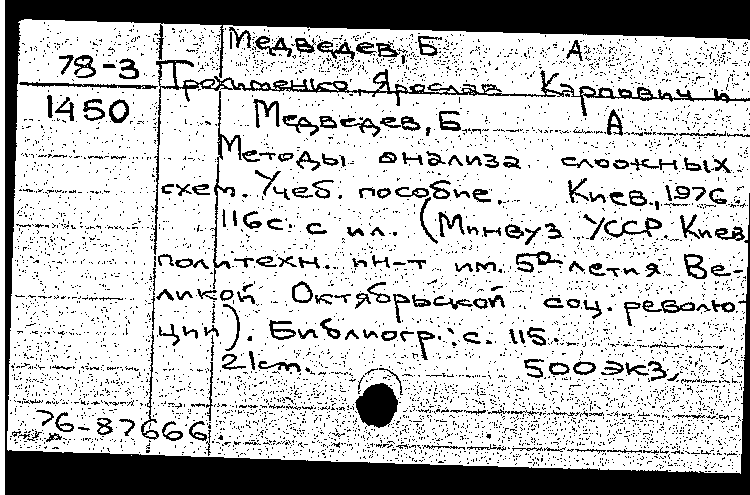 Медведев, Б А
78-3 Трохименко, Ярослав Карпович и
1450 Медведев, Б А
Методы анализа сложных
схем. Учеб. пособие. Киев, 1976.
116 с. с ил. (Минвуз УССР. Киев.
политехн. ин-т им. 50-летия Ве-
ликой Октябрьской соц. револю-
ции). Библиогр.: с. 115.
21 см. 500 экз,
76-87666.